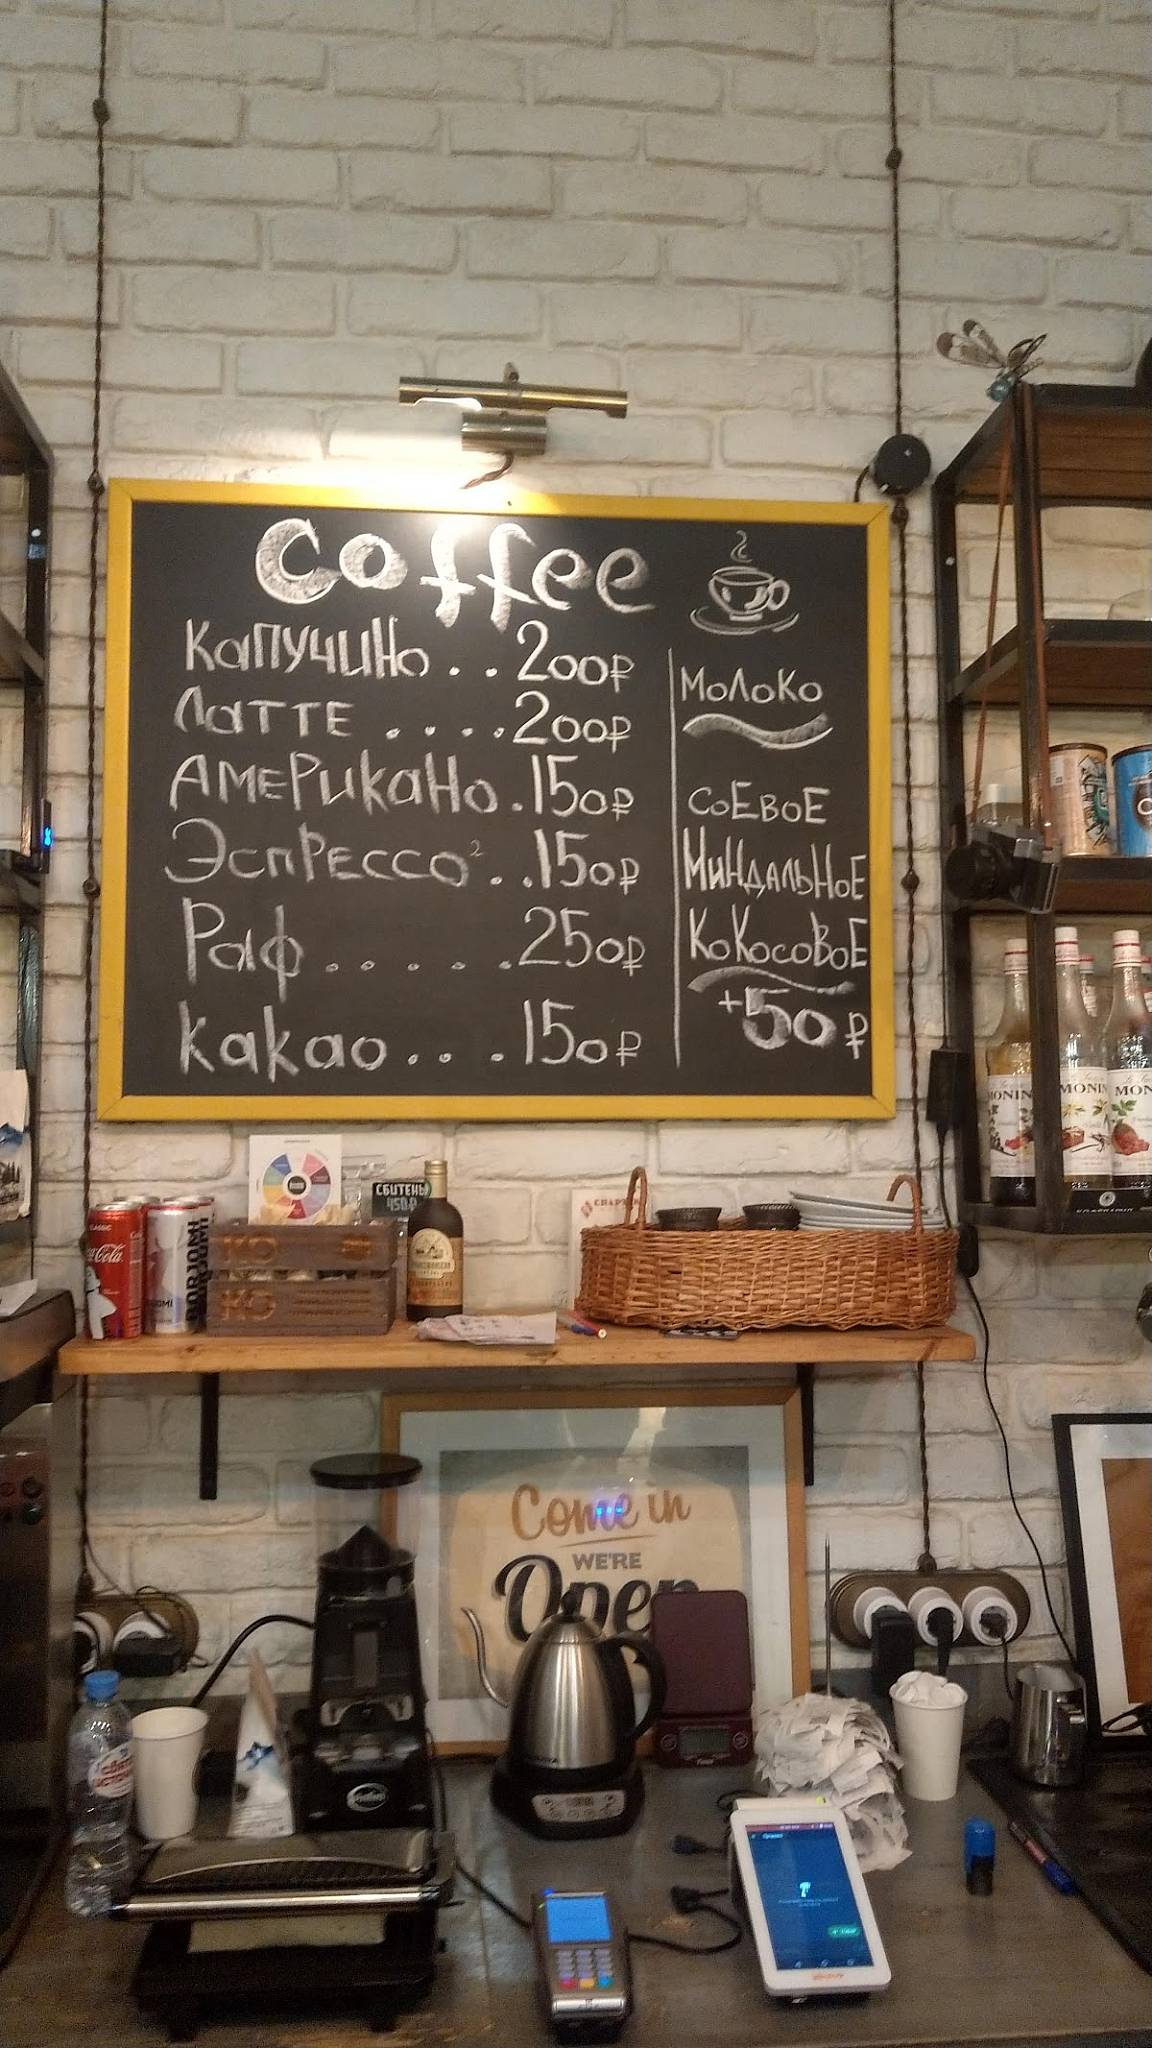 Coffee
Капучино . . 200₽
Латте . . . . 200₽
Американо . 150₽
Эспрессо² . . 150₽
Раф . . . . . 250₽
Какао . . . 150₽
Молоко
соевое
Миндальное
Кокосовое
+50₽
MONIN
MONIN
MON
СБИТЕНЬ
450₽
CLASSIC
Coca-Cola
BORJOMI
КО
КО
Come in
WE'RE
Open